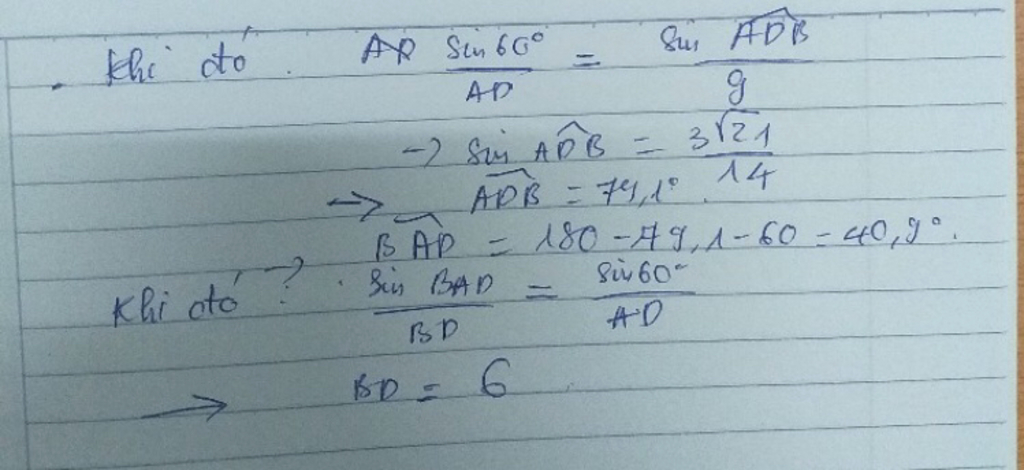 . Khi đó. sin 60° / AD = sin ADB / 9
→ sin ADB = 3√21 / 14
→ ADB = 79,1°.
BAD = 180 - 79,1 - 60 = 40,9°.
Khi đó → . sin BAD / BD = sin 60° / AD
→ BD = 6